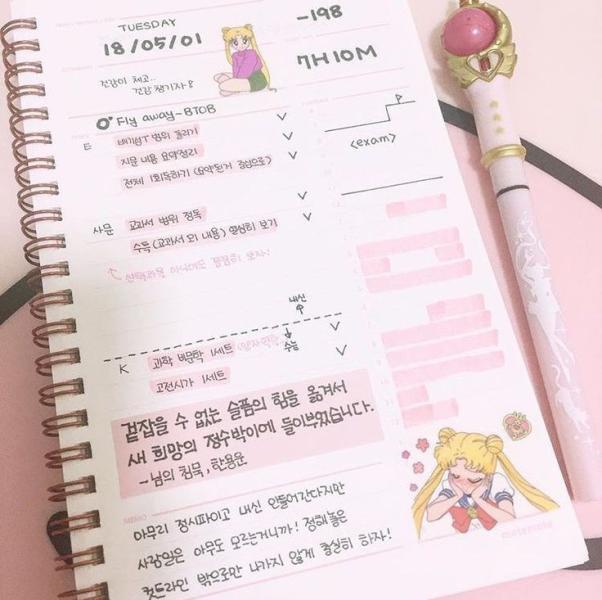 TUESDAY
18/05/01
-198
건강이 최고..
건강 챙기자!
7H 10M
Fly away-BTOB
E
범위 정리
지문 내용 요약정리
전체 1회독하기 (요약된거 중심으로)
<exam>
사문 교과서 범위 정독
수특 (교과서 외 내용) 열심히 보기
내신
수능
K 과학 비문학 1세트
고전시가 1세트
겉잡을 수 없는 슬픔의 힘을 옮겨서
새 희망의 정수박이에 들이부었습니다.
-님의 침묵, 한용운
MEMO
아무리 정시파이고 내신 안들어간다지만
사람일은 아무도 모르는거니까! 정해놓은
컷트라인 밖으로만 나가지 않게 열심히 하자!